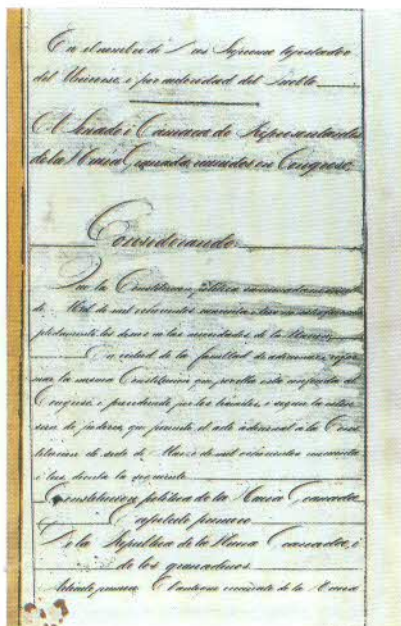 En el nombre de Dios Supremo Legislador
del Universo i por autoridad del Pueblo
El Senado i Cámara de Representantes
de la Nueva Granada, reunidos en Congreso,
Considerando:
Que la Constitucion política sancionada en
de Abril de mil ochocientos cuarenta i tres no satisface cum-
plidamente los deseos ni las necesidades de la Nacion;
En virtud de la facultad de adicionar i refor-
mar la misma Constitucion que por ella está
Congreso, i procediendo por los trámites, i segun la esten-
sion de poderes, que permite el acto adicional a la Cons-
titucion de siete de Marzo de mil ochocientos cincuenta
i tres, decreta la siguiente
Constitucion política de la Nueva Granada
Capítulo primero
De la República de la Nueva Granada, i
de los granadinos.
Artículo primero El antiguo vireinato de la Nueva